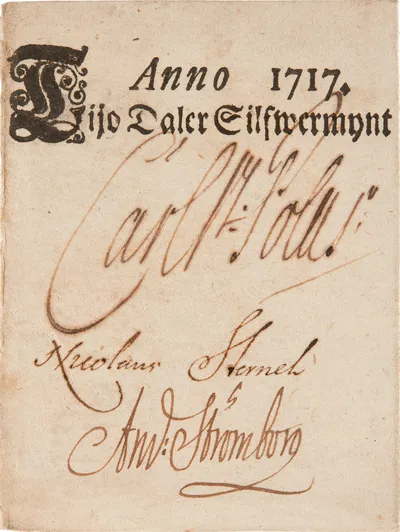 Anno 1717.
Tijo Daler Silfwermynt
Carl N: Polus:
Nicolaus Sternel
And: Strömborg